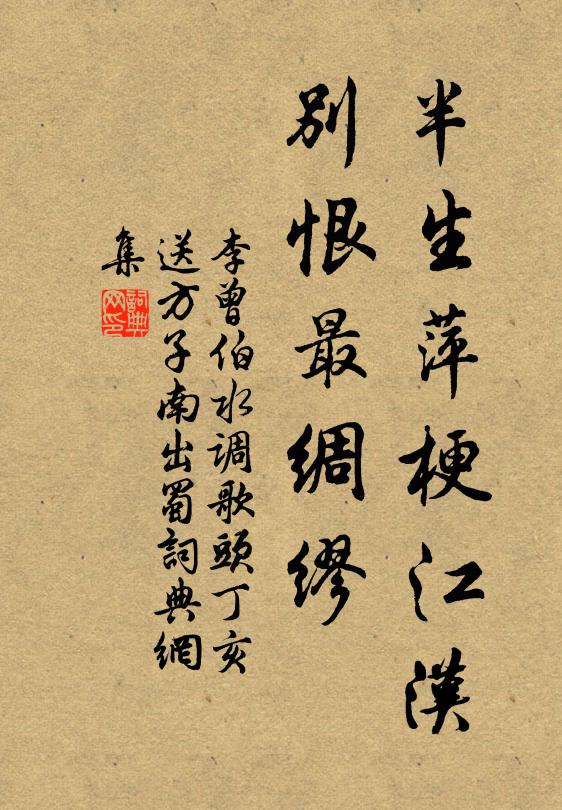 半生萍梗江漢
別恨最綢繆
李曾伯水调歌頭丁亥
送方子南出蜀詞典網
集
詞典
网印